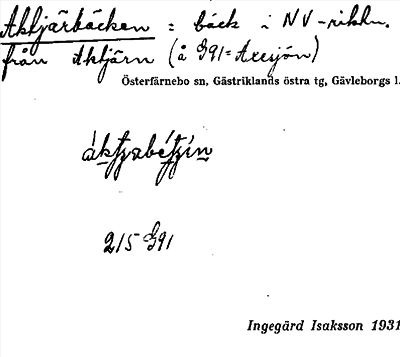 Aktjärbäcken = bäck i NV-riktn.
från Aktjärn (å G91 = Axsjön)
Österfärnebo sn, Gästriklands östra tg, Gävleborgs l.
215 G91
Ingegärd Isaksson 1931